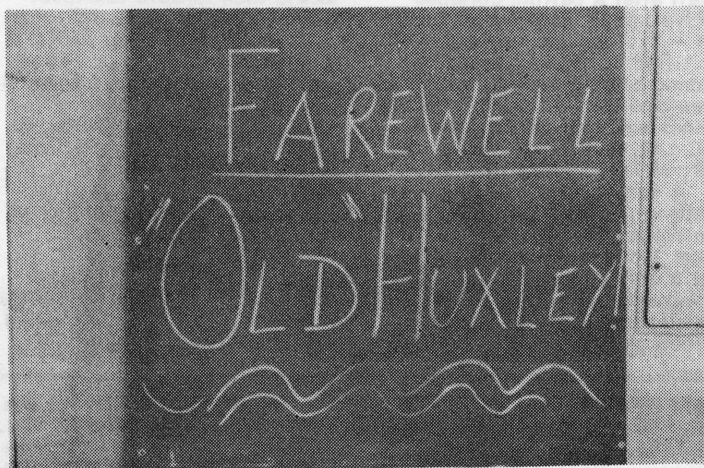 FAREWELL
"OLD" HUXLEY!